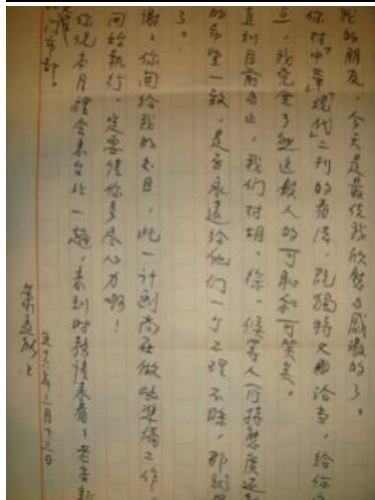 我的朋友，今天是最使我欣慰与感激的了。
你对中華、現代二刊的看法，既独特又恰当，给你
点，我完全了解这般人的可耻和可笑矣。
直到目前为止，我们对胡、徐、候等人所持态度还
的希望一致，是否永远给他们一个不理不睬，那就
了。
谢，你开给我的书目，此一计划尚在做些準備工作，
开始执行，一定要请你多尽心力啊！
你说本月裡会来台北一趟，来到时務請来看
门市部。
上
五十六年二月十三日